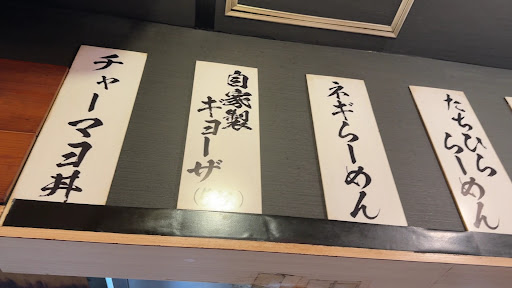 チャーマヨ丼
自家製
キョーザ
ネギらーめん
たちひら
らーめん